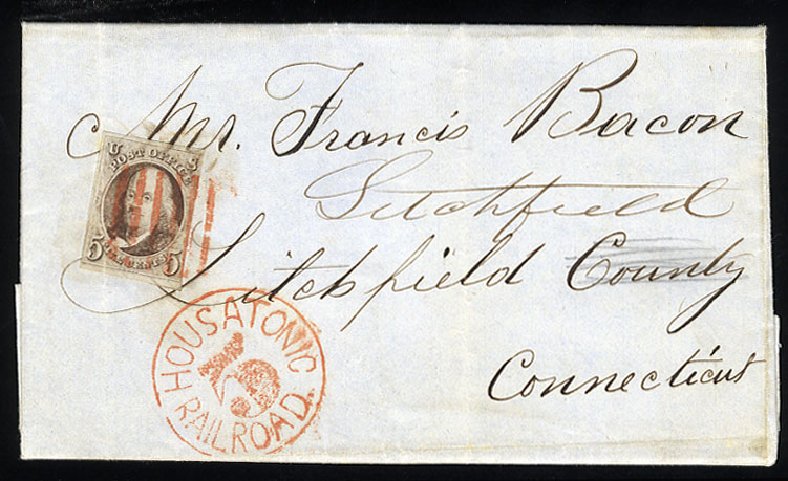 Mr. Francis Bacon
Litchfield
Litchfield County
Connecticut
U S
POST OFFICE
5 FIVE CENTS 5
HOUSATONIC
5
RAILROAD.